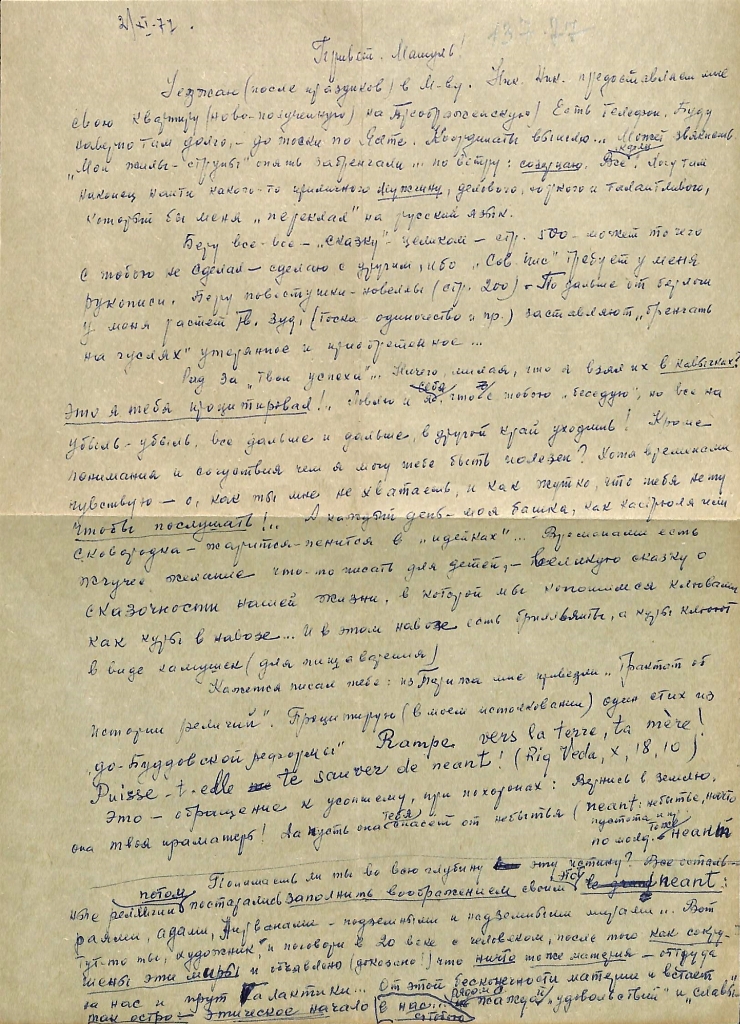 2/XI-77.
Привет, Мацуль!
Уезжаю (после праздников) в М-ву. Ник. Ник. предоставляет мне
свою квартиру (ново-полученную) на Преображенскую) Есть телефон. Буду
наверно там долго, - до тоски по Ялте. Координаты вышлю... Может звякнешь.
"Мои жилы-струны" опять забренчали... по ветру: созерцаю. Всё! Могу там
наконец найти какого-то приличного мужчину, делового, зоркого и талантливого,
который бы меня "переклал" на русский язык.
Беру все-все - "сказку"- целиком - стр. 500 - может то чего
с тобою не сделал - сделаю с другим, ибо "Сов. пис" требует у меня
рукописи. Беру повестушки-новеллы (стр. 200) - Подальше от берлоги
у меня растет тв. зуд, (тоска одиночество и пр.) заставляют "бренчать
на гуслях" утерянное и приобретенное...
Рад за "твои успехи"... Ничего, милая, что я взял их в кавычках?
Это я тебя процитировал! Ловлю я себя, что с тобою "беседую", но все на
убыль-убыль, все дальше и дальше, в другой край уходишь! Кроме
понимания и сочувствия чем я могу тебе быть полезен? Хотя временами
чувствую - о, как ты мне не хватаешь, и как жутко, что тебя нету
чтобы послушать!.. А каждый день - моя башка, как кастрюля или
сковородка - жарится-пенится в "идейках"... Временами есть
жгучее желание что-то писать для детей, - великую сказку о
сказочности нашей жизни, в которой мы копошимся клювами
как куры в навозе... И в этом навозе есть бриллианты, а куры клюют
в виде камушек (для пищеварения)
Кажется писал тебе: из Парижа мне привезли "Трактат об
истории религий". Процитирую (в моем истолковании) один стих из
"до-Буддовской реформы" Rampe vers la terre, ta mère!
Puisse-t-elle te sauver de neant! (Rig Veda, X, 18, 10)
Это - обращение к усопшему, при похоронах: Вернись в землю,
она твоя праматерь! Да пусть она тебя спасет от небытья (neant: небытье, ничто
пустота и ну
по молд. тоже неант
Понимаешь ли ты во всю глубину эту истину? Все осталь-
ные религии потом постарались заполнить воображением своим этот neant:
раями, адами, Нирванами - подземными и надземными мирами... Вот
тут-то ты, "художник", и поговори в 20 веке с человеком, после того как сокру-
шены эти миры и объявлено (доказано!) что ничто тоже материя - оттуда
на нас и прут Галактики... От этой бесконечности материи и встает
так остро - этическое начало в нас... рядом с жаждой "удовольствий" и "славы"